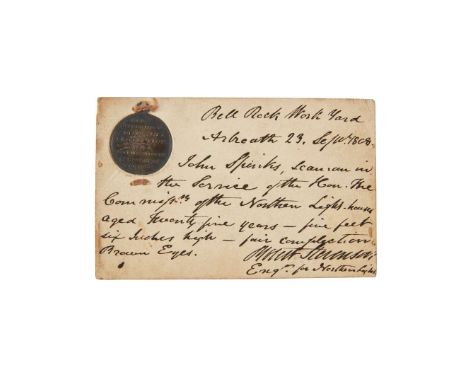 Bell Rock Work Yard
Arbroath 23. Sepr. 1808.
John Spinks, seaman in
the Service of the Hon. The
Commissrs. of the Northern Light-houses
aged Twenty five years — five feet
six Inches high — fair complection
Brown Eyes.
Robert Stevenson
Engr. for Northern Lights